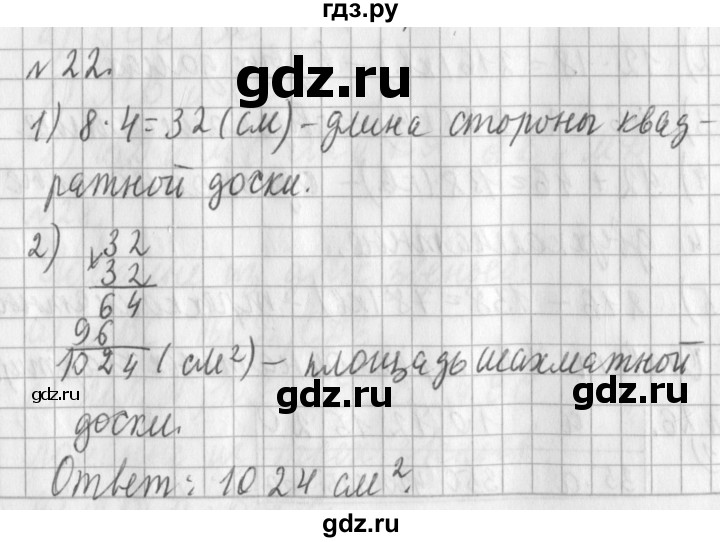 гдз.ру
№ 22.
gdz.ru
1) 8·4=32 (см) - длина стороны квад-
ратной доски.
2) 32
× 32
64
96
1024 (см²) - площадь шахматной
gdz.ru
gdz.ru
gdz.ru
доски.
Ответ: 1024 см².
gdz.ru